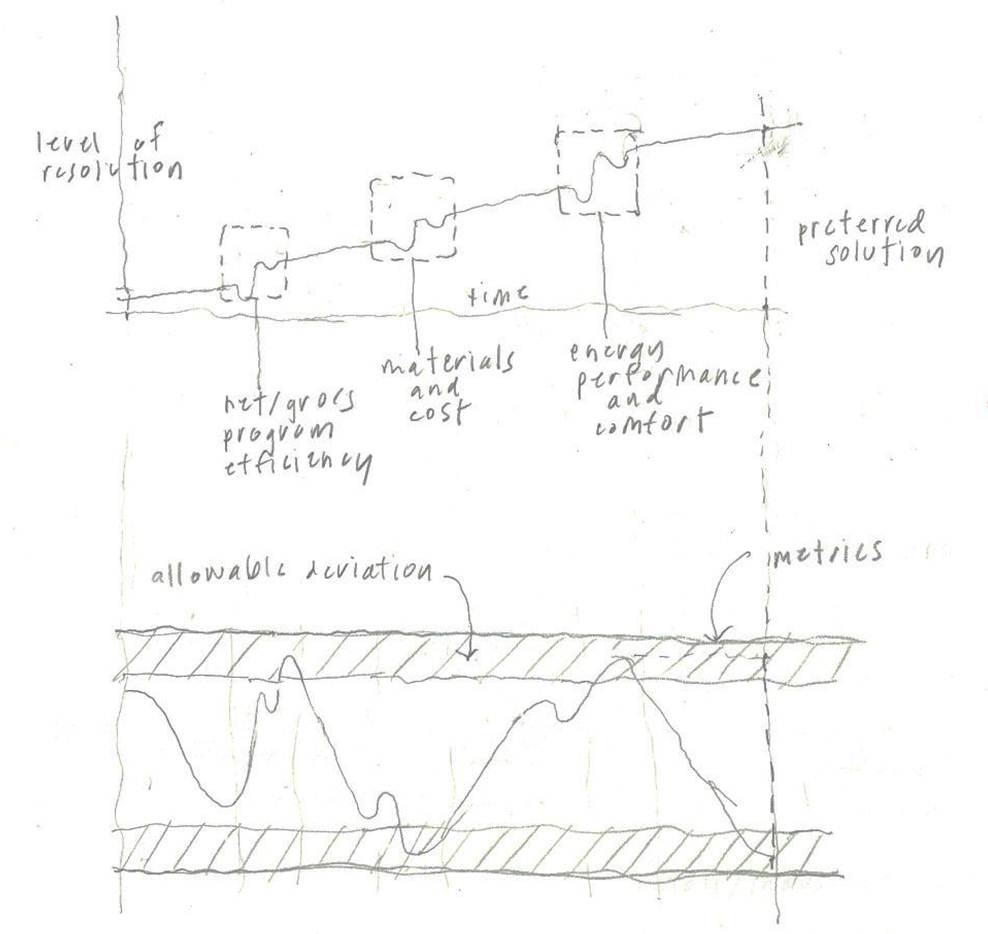 level of
resolution
preferred
solution
time
net/gross
program
efficiency
materials
and
cost
energy
performance
and
comfort
allowable deviation
metrics